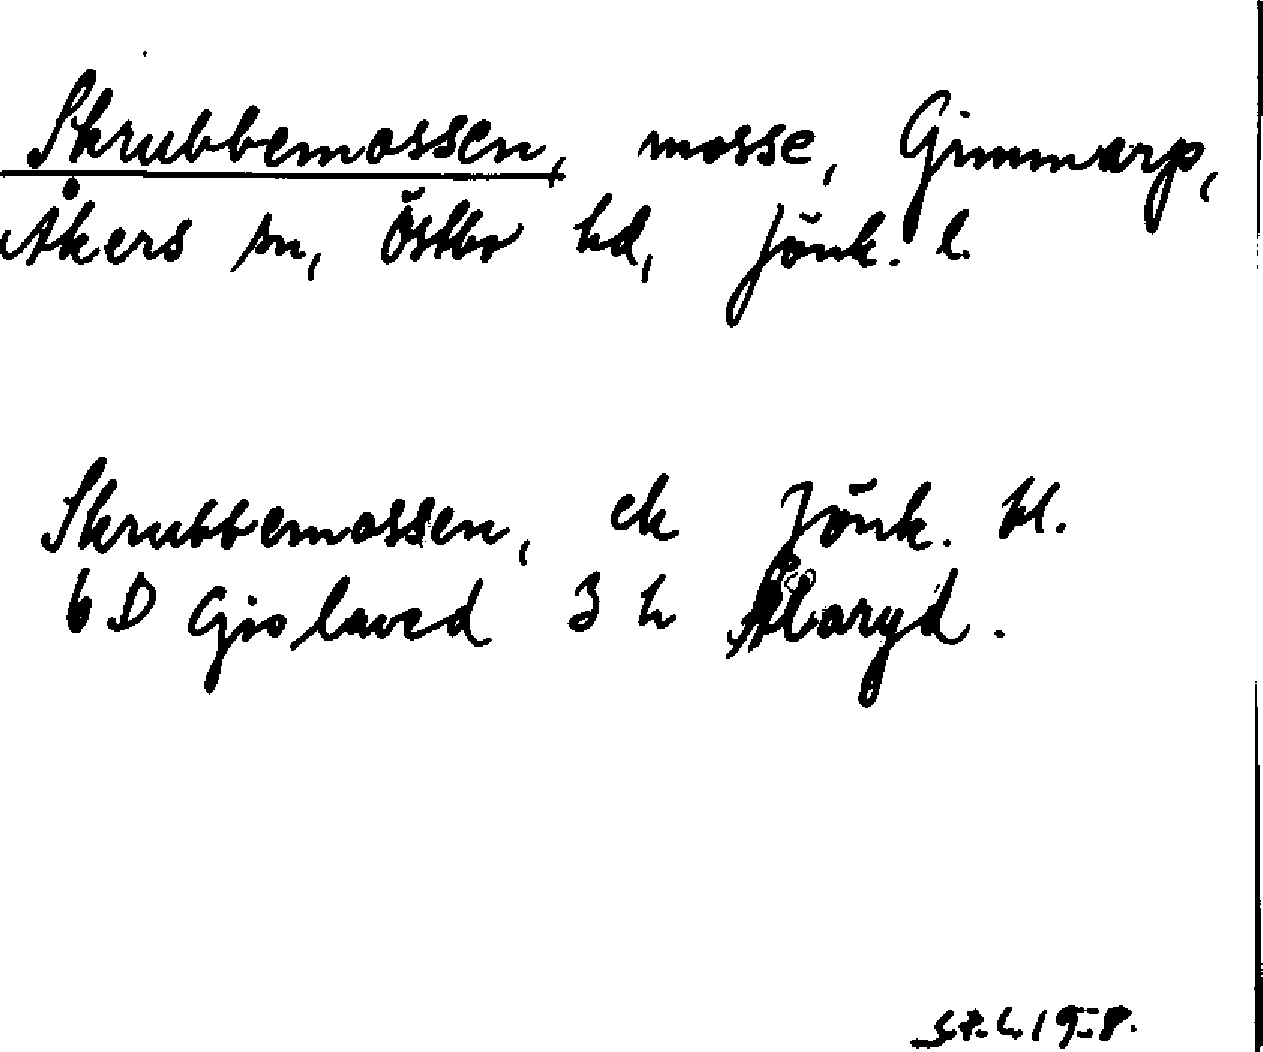 Skrubbemossen, mosse, Gimmarp,
Åkers sn, Östbo hd, Jönk. l.
Skrubbemossen, ek Jönk. bl.
6D Gislaved 3 h Alaryd.
1958.